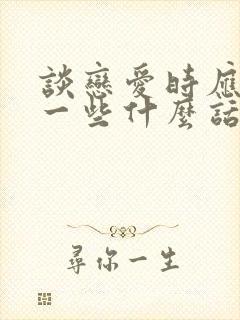 談戀愛時應
一些什麼話
尋你一生